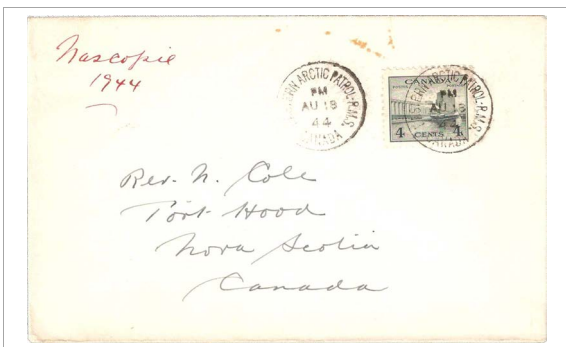 Nascopie
1944
EASTERN ARCTIC PATROL-R.M.S.
PM
AU 18
44
CANADA
CANADA
4 CENTS 4
EASTERN ARCTIC PATROL-R.M.S.
PM
AU 18
CANADA
Rev. N. Cole
Port Hood
Nova Scotia
Canada